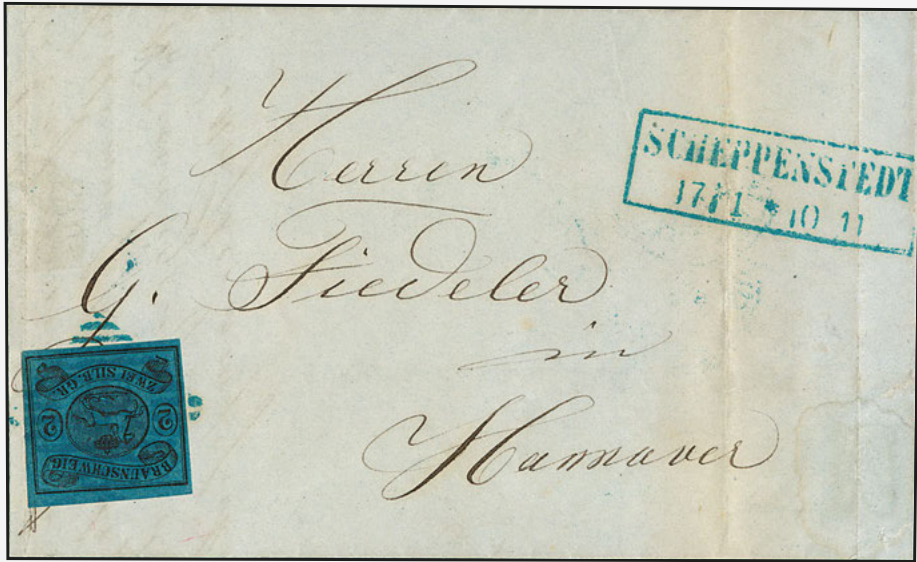 Herren
G. Fiedeler
in
Hannover
SCHEPPENSTEDT
10 11
BRAUNSCHWEIG
2 2
ZWEI SILB. GR.